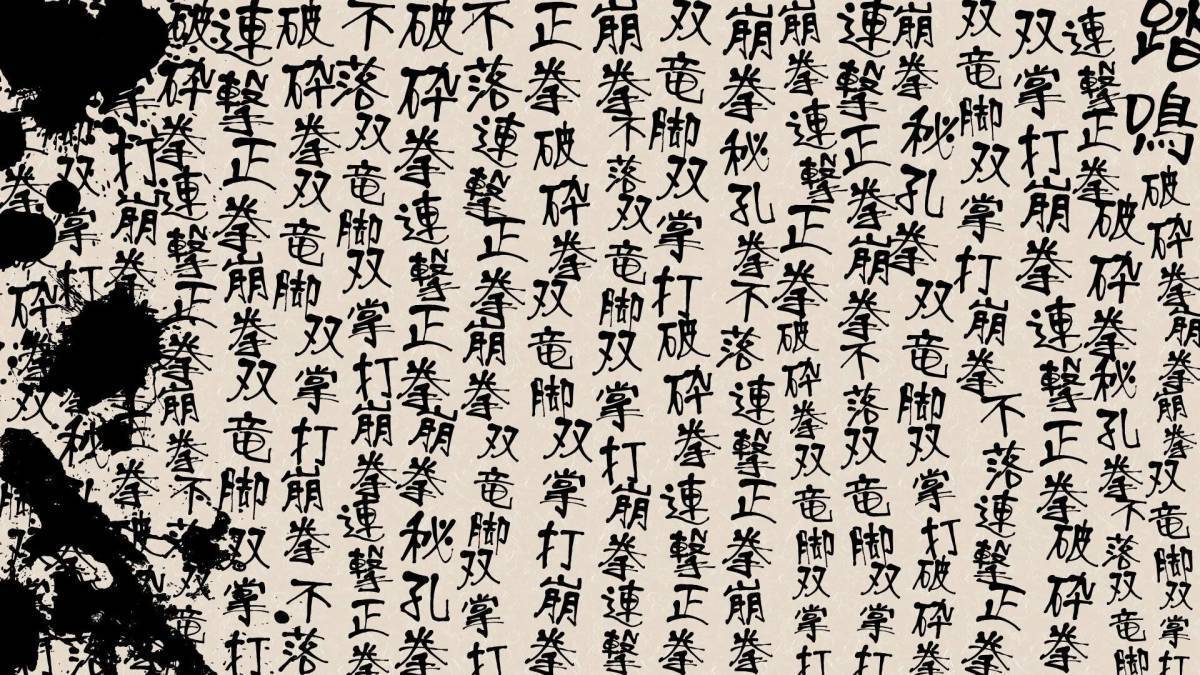 踏鳴破砕拳崩拳双竜脚双掌打
連撃正拳破砕拳秘孔拳不落双竜脚
双掌打崩拳連撃正拳破砕拳
双竜脚双掌打崩拳不落連撃正拳
崩拳秘孔拳双竜脚双掌打破砕拳
連撃正拳崩拳不落双竜脚双掌打
崩拳連撃正拳破砕拳双竜脚双掌打
崩拳秘孔拳不落連撃正拳崩拳
双竜脚双掌打破砕拳連撃正拳
崩拳不落双竜脚双掌打崩拳連撃
正拳破砕拳双竜脚双掌打崩拳
不落連撃正拳崩拳双竜脚双掌打
破砕拳連撃正拳崩拳秘孔拳
不落双竜脚双掌打崩拳連撃正拳
破砕拳双竜脚双掌打崩拳不落
連撃正拳崩拳双竜脚双掌打
破砕拳連撃正拳崩拳不落双竜
掌打崩拳
双掌打
拳砕拳双